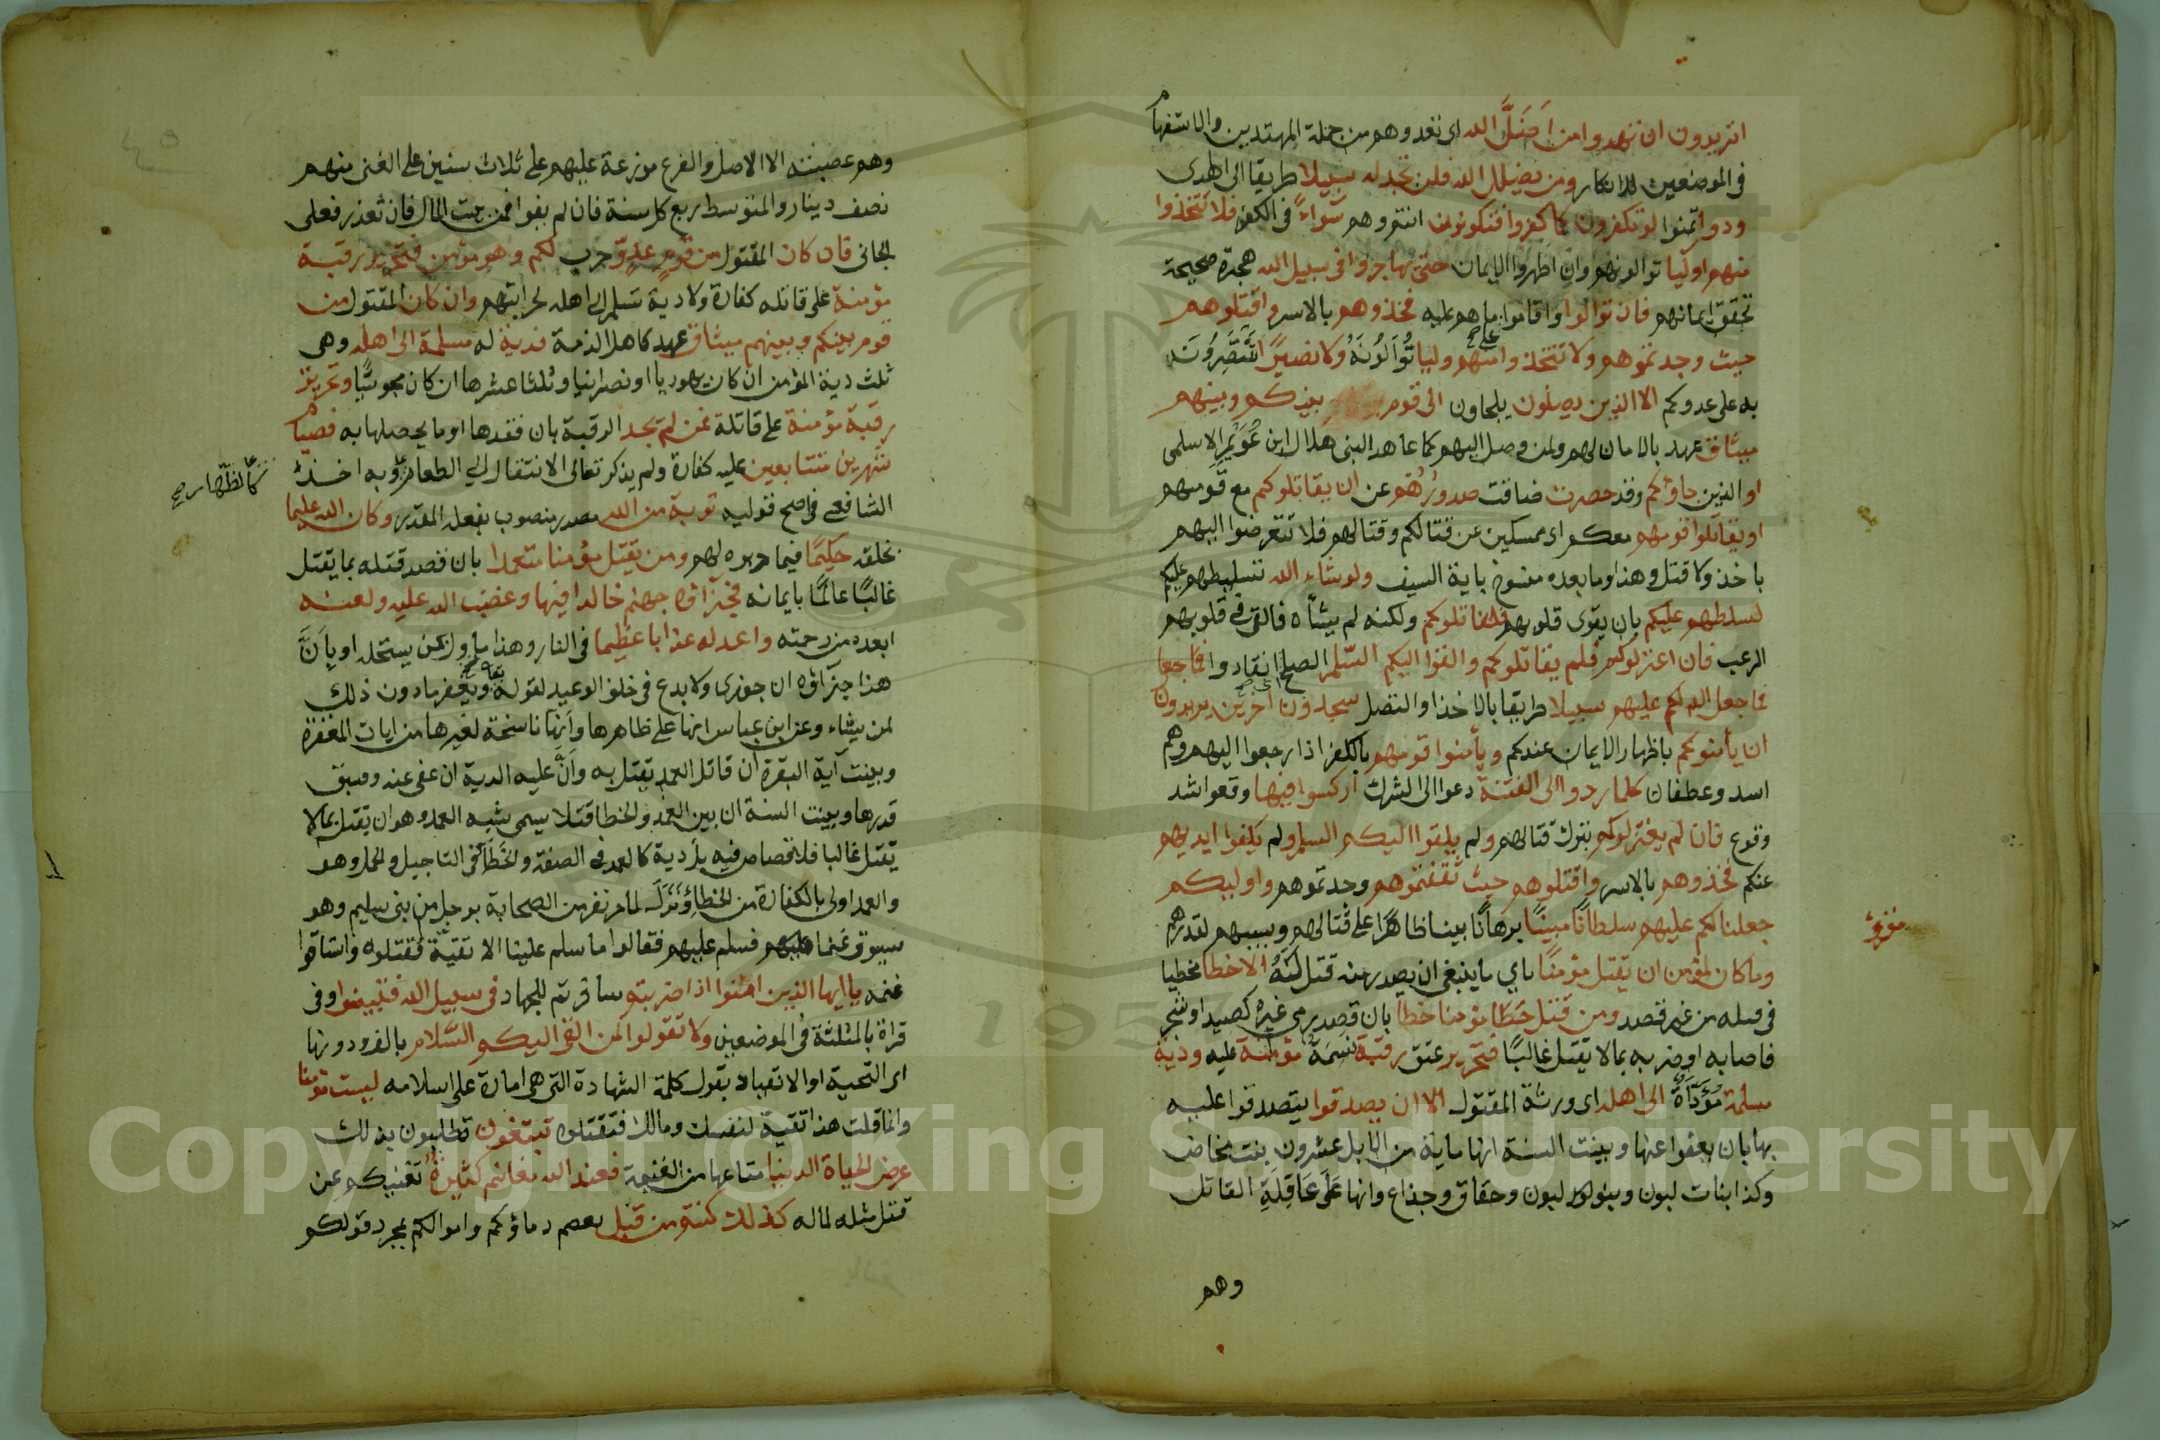 اتريدون ان تهدوا من اضل الله اى تعدوهم من جملة المهتدين والاستفهام
فى الموضعين للانكار ومن يضلل الله فلن تجد له سبيلا طريقا الى الهدى
ودوا تمنوا لو تكفرون كما كفروا فتكونون انتم وهم سَوَاءً فى الكفر فلا تتخذوا
منهم اوليا توالونهم وان اظهروا الايمان حتى يهاجروا فى سبيل الله هجرة صحيحة
تحقق ايمانهم فان تولوا واقاموا على ما هم عليه فخذوهم بالاسر واقتلوهم
حيث وجدتموهم ولا تتخذوا منهم وليا تُوَالُونَهُ ولا نصيرًا تَنْتَصِرُونَ
به على عدوكم الا الذين يصلون يلجاون الى قوم بينكم وبينهم
ميثاق عهد بالامان لهم ولمن وصل اليهم كما عاهد النبى هلال ابن عُوَيْمِرِ الاسلمى
او الذين جاؤكم وقد حصرت ضاقت صدورُهُم عن ان يقاتلوكم مع قومهم
او يقاتلوا قومهم معكم اى ممسكين عن قتالكم وقتالهم فلا تتعرضوا اليهم
باخذ ولا قتل وهذا وما بعده منسوخ باية السيف ولو شاء الله تسليطهم عليكم
لسلطهم عليكم بان يقوى قلوبهم فلقاتلوكم ولكنه لم يشاه فالقى فى قلوبهم
الرعب فان اعتزلوكم فلم يقاتلوكم والقوا اليكم السَّلم الصلح اى انقادوا فما جعل
فما جعل الله لكم عليهم سبيلا طريقا بالاخذ والقتل ستجدون آخرين يريدون
ان يأمنوكم باظهار الايمان عندكم ويأمنوا قومهم بالكفر اذا رجعوا اليهم وهم
اسد وغطفان كلما ردوا الى الفتنة دعوا الى الشرك اركسوا فيها وقعوا اشد
وقوع فان لم يعتزلوكم بترك قتالهم ولم يلقوا اليكم السلم ولم يكفوا ايديهم
عنكم فخذوهم بالاسر واقتلوهم حيث ثقفتموهم وجدتموهم واوليكم
جعلنا لكم عليهم سلطانًا مبينًا برهانًا بينا ظاهرًا على قتالهم وسبيهم لغدرهم
وما كان لمؤمن ان يقتل مؤمنًا اى ما ينبغى ان يصدر منه قتل لَهُ الا خطا مخطيا
فى قتله من غير قصد ومن قتل مؤمنا خطا بان قصد رمى غيره كصيد او شجر
فاصابه او ضربه بما لا يقتل غالبًا فتحرير عتق رقبة نسمة مؤمنة عليه ودية
مسلمة مُؤَدَّاةٌ الى اهله اى ورثة المقتول الا ان يصدقوا يتصدقوا عليه
بها بان يعفوا عنها وبينت السنة انها ماية من الابل عشرون بنت مخاض
وكذا بنات لبون وبنو لبون وحقاق وجذاع وانها عَلَى عَاقِلَةِ القاتل
وهم
وهم عصبته الا الاصل والفرع موزعة عليهم على ثلاث سنين على الغنى منهم
نصف دينار والمتوسط ربع كل سنة فان لم يفوا فمن بيت المال فان تعذر فعلى
الجانى فان كان المقتول من قوم عدوّ حرب لكم وهو مؤمن فتحرير رقبة
مؤمنة على قاتله كفارة ولا دية تسلم الى اهله لحرابتهم وان كان المقتول من
قوم بينكم وبينهم ميثاق عهد كاهل الذمة فدية له مسلمة الى اهله وهى
ثلث دية المؤمن ان كان يهوديا او نصرانيا وثلثا عشرها ان كان مجوسيًّا وتحرير
رقبة مؤمنة على قاتله فمن لم يجد الرقبة بان فقدها او ما يحصلها به فصيام
شهرين متتابعين عليه كفارة ولم يذكر تعالى الانتقال الى الطعام وبه اخذ
كالظهار صح
الشافعى فى اصح قوليه توبة من الله مصدر منصوب بفعله المقدر وكان الله عليما
بخلقه حكيمًا فيما دبره لهم ومن يقتل مؤمنا متعمدا بان قصد قتله بما يقتل
غالبًا عالمًا بايمانه فجزآؤه جهنم خالدا فيها وغضب الله عليه ولعنه
ابعده من رحمته واعد له عذابا عظيما فى النار وهذا ماول بمن يستحله او بِأَنَّ
هذا جزآؤه ان جوزى ولا بدع فى خلف الوعيد لقوله تعالى ويغفر ما دون ذلك
لمن يشاء وعن ابن عباس انها على ظاهرها وانها ناسخة لغيرها من ايات المغفرة
وبينت آية البقرة ان قاتل العمد يقتل به وانّ عليه الدية ان عفى عنه وسبق
قدرها وبينت السنة ان بين العمد والخطا قتلا يسمى شبه العمد وهو ان يقتل بما لا
يقتل غالبا فلا قصاص فيه بل دية كالعمد فى الصفة والخطأ فى التاجيل والحمل وهو
والعمد اولى بالكفارة من الخطا وَنَزَلَ لما مر نفر من الصحابة برجل من بنى سليم وهو
يسوق غنما فسلم عليهم فقالوا ما سلم علينا الا تقية فقتلوه واستاقوا
غنمه ياايها الذين امنوا اذا ضربتم سافرتم للجهاد فى سبيل الله فتبينوا وفى
قراة بالمثلثة فى الموضعين ولا تقولوا لمن القى اليكم السلام بالف ودونها
اى التحية او الانقياد بقول كلمة الشهادة التى هى امارة على اسلامه لست مؤمنا
وانما قلت هذا تقية لنفسك ومالك فتقتلوه تبتغون تطلبون بذلك
عرض الحياة الدنيا متاعها من الغنيمة فعند الله مغانم كثيرةٌ تغنيكم عن
قتل مثله لماله كذلك كنتم من قبل تعصم دماؤكم واموالكم بمجرد قولكم
Copyright © King Saud University
1957